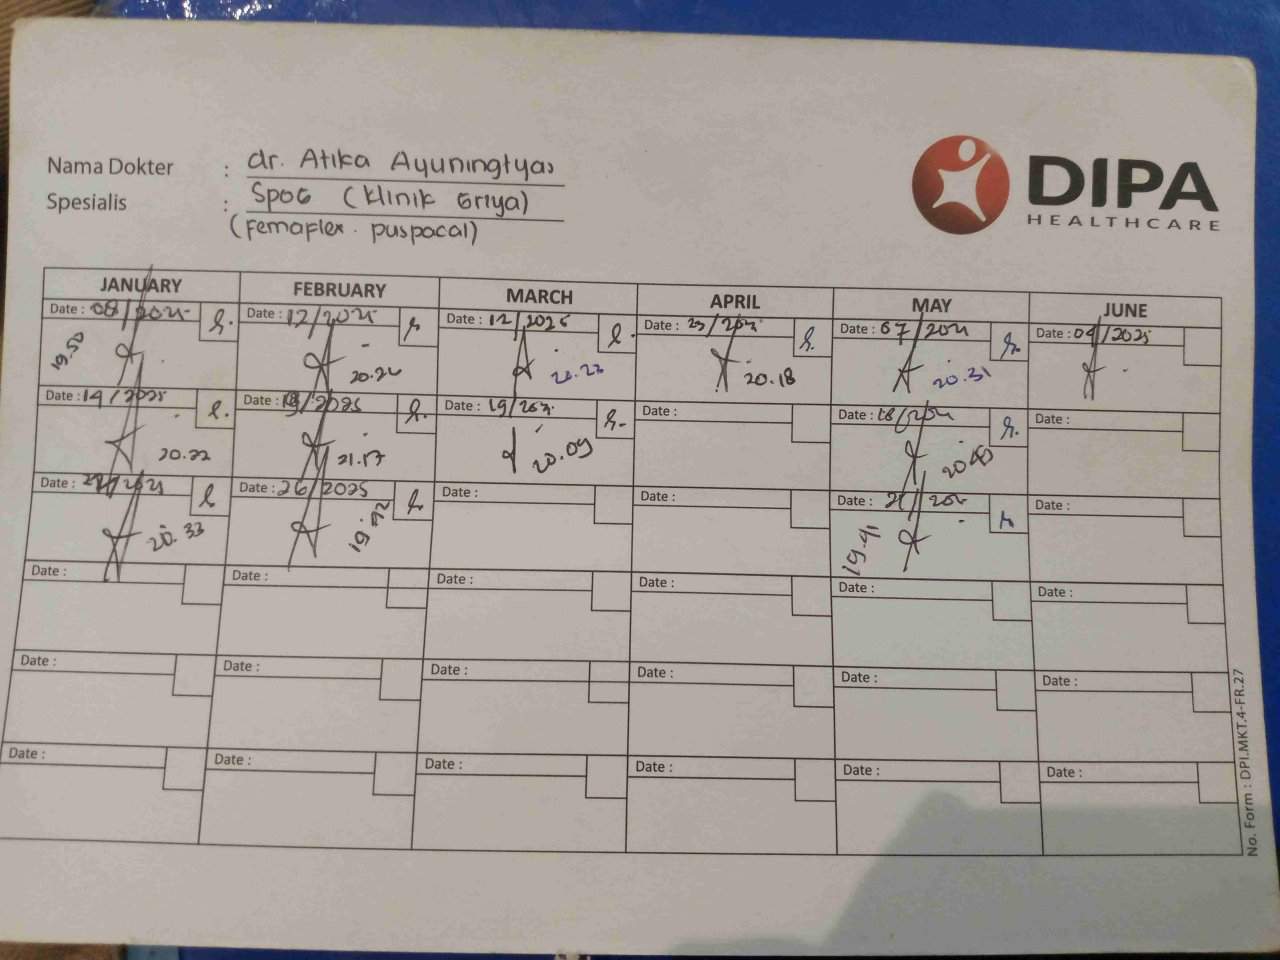 DIPA
HEALTHCARE
Nama Dokter : dr. Atika Ayuningtyas
Spesialis : SpOG (Klinik Griya)
(Femaflex. puspacal)
JANUARY FEBRUARY MARCH APRIL MAY JUNE
Date : 08/2025 Date : 12/2025 Date : 12/2025 Date : 23/202 Date : 07/202 Date : 04/2025
19.50 20.22 20.18 20.31
Date : 14/2025 Date : /2025 Date : 19/202 Date : Date : Date :
20.22 21.17 20.09
Date : Date : 26/2025 Date : Date : Date : 21/202 Date :
20.33 19.42 19.41
Date : Date : Date : Date : Date : Date :
Date : Date : Date : Date : Date : Date :
Date : Date : Date : Date : Date : Date :
No. Form : DPI.MKT.4-FR.27